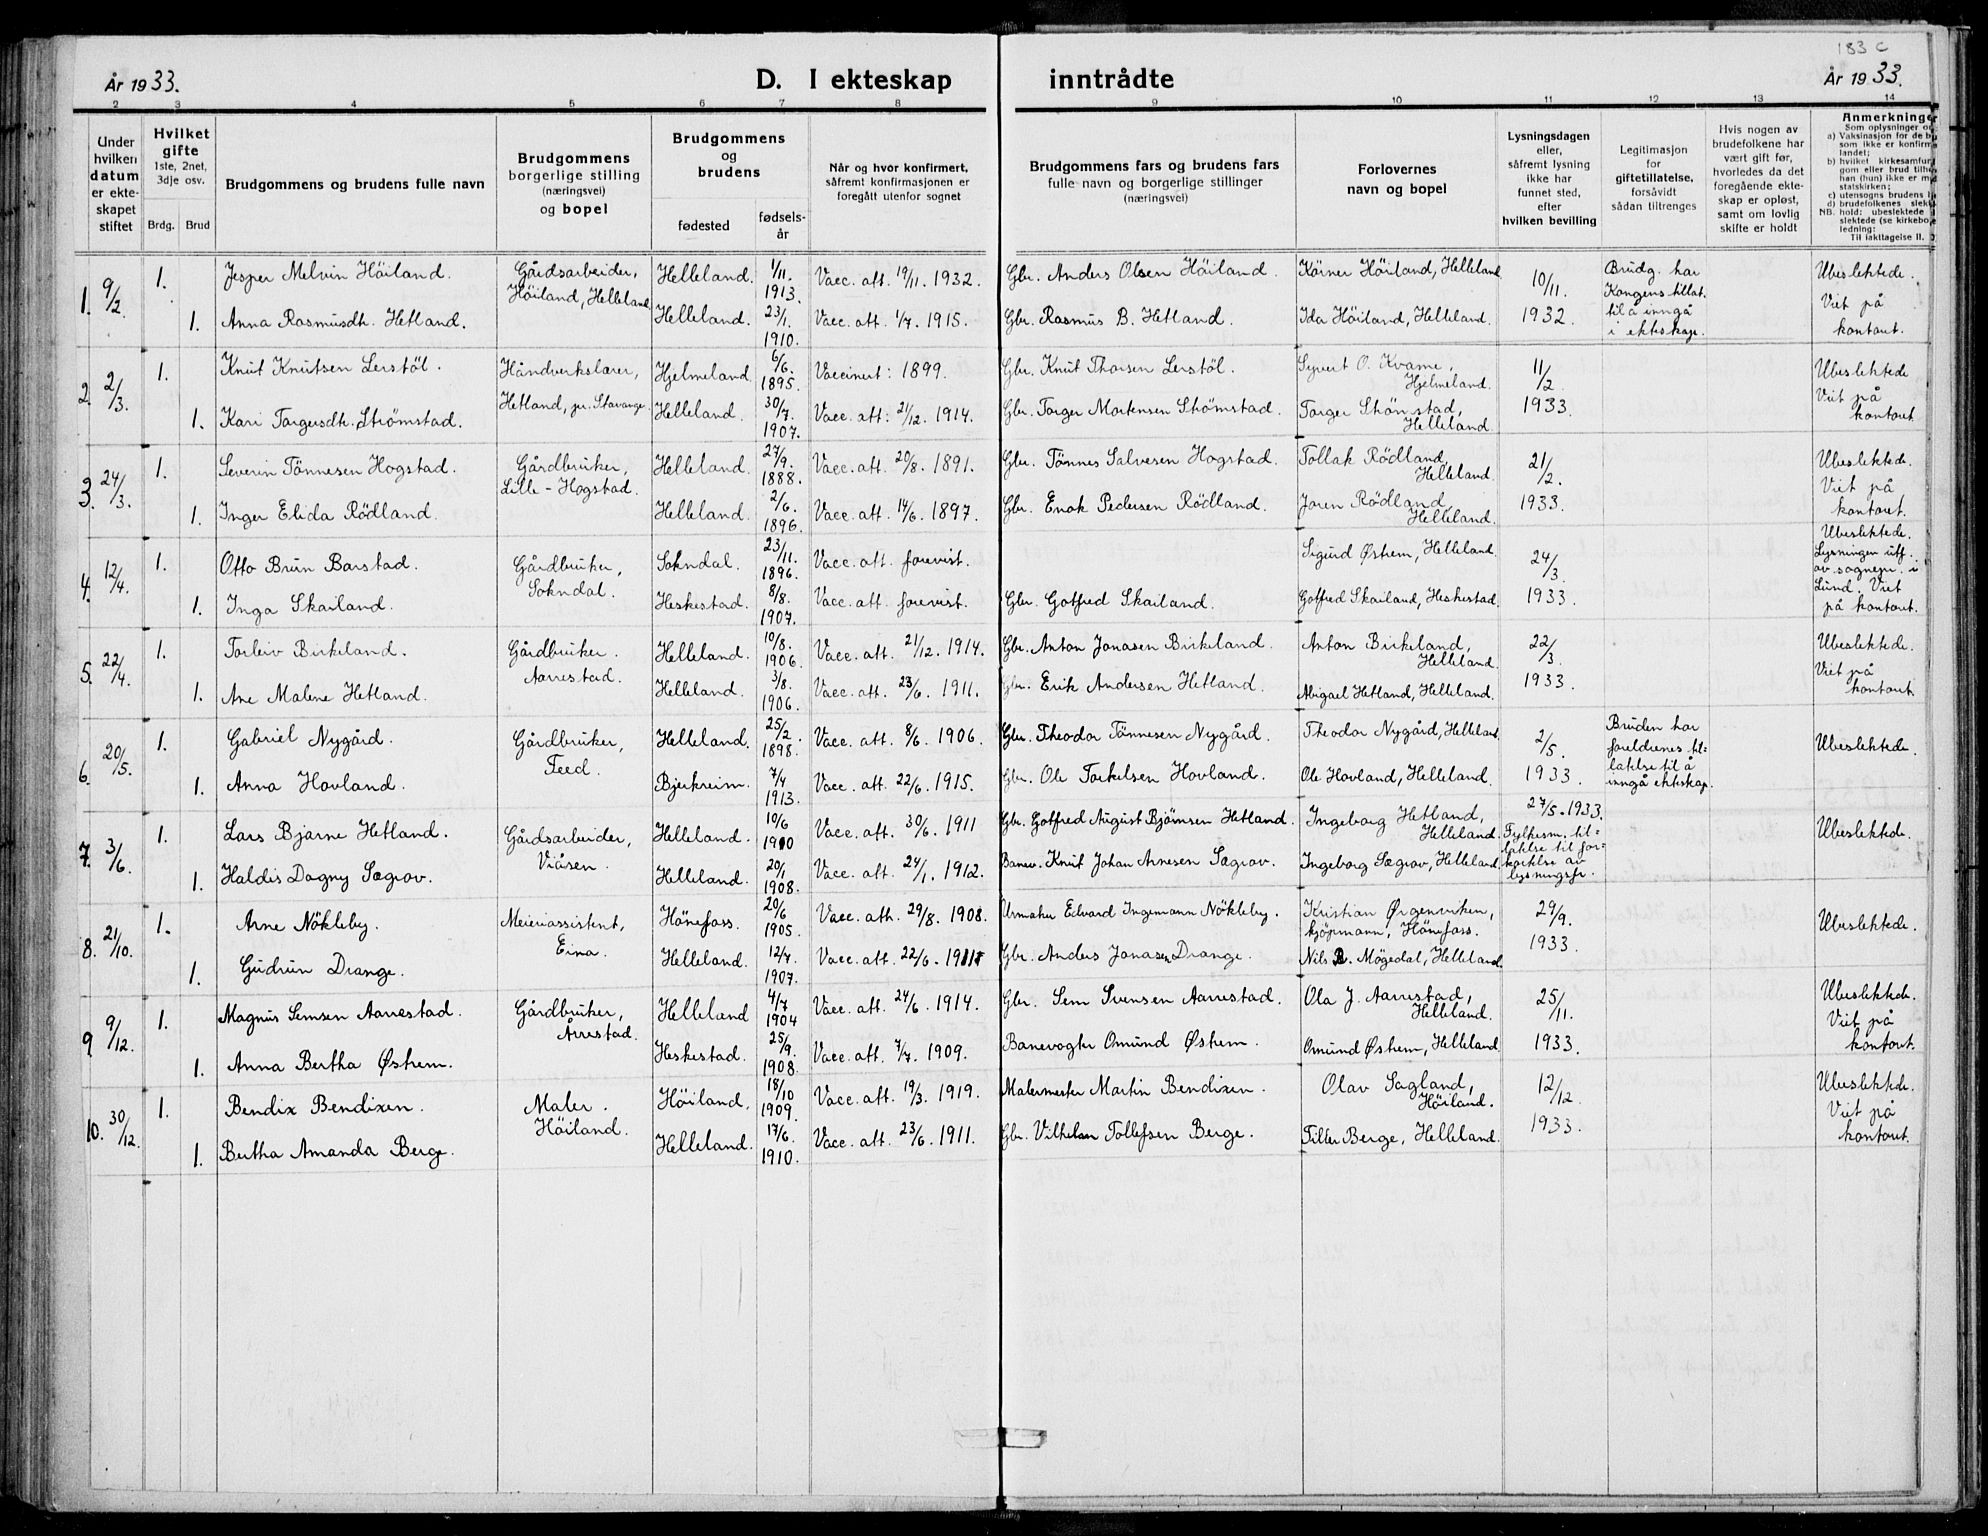 183 c
År 1933.
D. I ekteskap inntrådte
År 1933.
2 3 4 5 6 7 8 9 10 11 12 13 14
Under hvilken datum er ekteskapet stiftet
Hvilket gifte 1ste, 2net, 3dje osv.
Brdg. Brud
Brudgommens og brudens fulle navn
Brudgommens borgerlige stilling (næringsvei) og bopel
Brudgommens og brudens
fødested
fødselsår
Når og hvor konfirmert, såfremt konfirmasjonen er foregått utenfor sognet
Brudgommens fars og brudens fars fulle navn og borgerlige stillinger (næringsvei)
Forlovernes navn og bopel
Lysningsdagen eller, såfremt lysning ikke har funnet sted, efter hvilken bevilling
Legitimasjon for giftetillatelse, forsåvidt sådan tiltrenges
Hvis nogen av brudefolkene har vært gift før, hvorledes da det foregående ekteskap er opløst, samt om lovlig skifte er holdt
Anmerkninger
1. 9/2. 1. Jesper Melvin Höiland. Gårdsarbeider, Höiland, Helleland. Helleland. 1/11. 1913. Vacc. att. 19/11. 1932. Gbr. Anders Olsen Höiland. Körner Höiland, Helleland 10/11. 1932. Brudg. har Kongens tillat. til å inngå i ekteskap. Ubeslektede. Viet på kontoret.
1. Anna Rasmusdtr. Hetland. Helleland. 23/1. 1910. Vacc. att. 1/7. 1915. Gbr. Rasmus B. Hetland. Ida Höiland, Helleland.
2. 2/3. 1. Knut Knutsen Lerstöl. Håndverkslærer, Hetland, pr. Stavanger. Hjelmeland 6/6. 1895. Vaccinert: 1899. Gbr. Knut Thorsen Lerstöl. Syvert O. Kvame, Hjelmeland. 11/2. 1933. Ubeslektede Viet på kontoret
1. Kari Torgersdtr. Strømstad. Helleland. 30/7. 1907. Vacc. att: 21/12. 1914. Gbr. Torger Mortensen Strømstad. Torger Strömstad, Helleland
3. 24/3. 1. Severin Tönnesen Hogstad. Gårdbruker, Lille-Hogstad. Helleland. 27/9. 1888. Vacc. att. 20/8. 1891. Gbr. Tönnes Salvesen Hogstad. Tollak Rödland, Helleland. 21/2. 1933. Ubeslektede. Viet på kontoret.
1. Inger Elida Rödland. Helleland. 2/6. 1896. Vacc. att. 14/6. 1897. Gbr. Enok Pedersen Rödland. Joren Rödland, Helleland.
4. 12/4. 1. Otto Brun Barstad. Gårdbruker, Sokndal. Sokndal. 23/11. 1896. Vacc. att. forevist. Sigurd Østrem, Helleland. 24/3. 1933. Ubeslektede. Lysningen utf. av sognepr. i Lund. Viet på kontoret.
1. Inga Skailand. Heskestad. 8/8. 1907. Vacc. att. forevist. Gbr. Gotfred Skailand. Gotfred Skailand, Heskestad.
5. 22/4. 1. Torleiv Birkeland. Gårdbruker. Aarrestad. Helleland. 10/8. 1906. Vacc. att. 21/12. 1914. Gbr. Anton Jonasen Birkeland. Anton Birkeland, Helleland. 22/3. 1933. Ubeslektede. Viet på kontoret.
1. Ane Malene Hetland. Helleland. 3/8. 1906. Vacc. att. 23/6. 1911. Gbr. Erik Andersen Hetland. Abigael Hetland, Helleland.
6. 20/5. 1. Gabriel Nygård. Gårdbruker, Feed. Helleland. 25/2. 1898. Vacc. att. 8/6. 1906. Gbr. Theodor Tönnesen Nygård. Theodor Nygård, Helleland. 2/5. 1933. Bruden har foreldrenes tillatelse til å inngå ekteskap. Ubeslektede.
1. Anna Hovland. Bjerkreim. 7/4 1913. Vacc. att. 22/6. 1915. Gbr. Ole Torkelsen Hovland. Ole Hovland, Helleland.
7. 3/6. 1. Lars Bjarne Hetland. Gårdsarbeider, Viåsen. Helleland. 10/6 1900 Vacc. att. 30/6. 1911 Gbr. Gotfred August Bjørnsen Hetland. Ingeborg Hetland, Helleland. 27/5. 1933. Fylkesm. tillatelse til forkortelse av lysningsfr. Ubeslektede.
1. Haldis Dagny Sægrov. Helleland. 20/1 1908. Vacc. att. 24/1. 1912. Banev. Knut Johan Arnesen Sægrov. Ingeborg Sægrov, Helleland.
8. 21/10. 1. Arne Nökleby. Meieriassistent, Eina. Hönefoss. 20/6 1905. Vacc. ath. 29/8. 1908. Urmaker Edvard Ingemann Nökleby. Kristian Ørgenviken, kjøpmann, Hönefoss. 29/9. 1933. Ubeslektede.
1. Gudrun Drange. Helleland. 12/7. 1907. Vacc. att. 22/6. Gbr. Anders Jonasen Drange. Nils R. Møgedal, Helleland.
9. 9/12. 1. Magnus Semsen Aarrestad. Gårdbruker, Årrestad. Helleland 4/7 1904 Vacc. att. 24/6. 1914. Gbr. Sem Svensen Aarrestad. Ola J. Aarrestad, Helleland. 25/11. 1933. Ubeslektede. Viet på kontoret.
1. Anna Bertha Østrem. Heskestad. 25/9. 1908. Vacc. att. 7/7. 1909. Banevogter Omund Østrem. Omund Østrem, Helleland.
10. 30/12. 1. Bendix Bendixen. Maler. Höiland. Höiland. 18/10 1909. Vacc. att. 19/3. 1919. Malermester Martin Bendixen. Olav Sagland, Höiland. 12/12. 1933. Ubeslektede. Viet på kontoret.
1. Bertha Amanda Berge. Helleland. 17/6. 1910. Vacc. att. 23/6. 1911. Gbr. Vilhelm Tollefsen Berge. Filler Berge, Helleland.